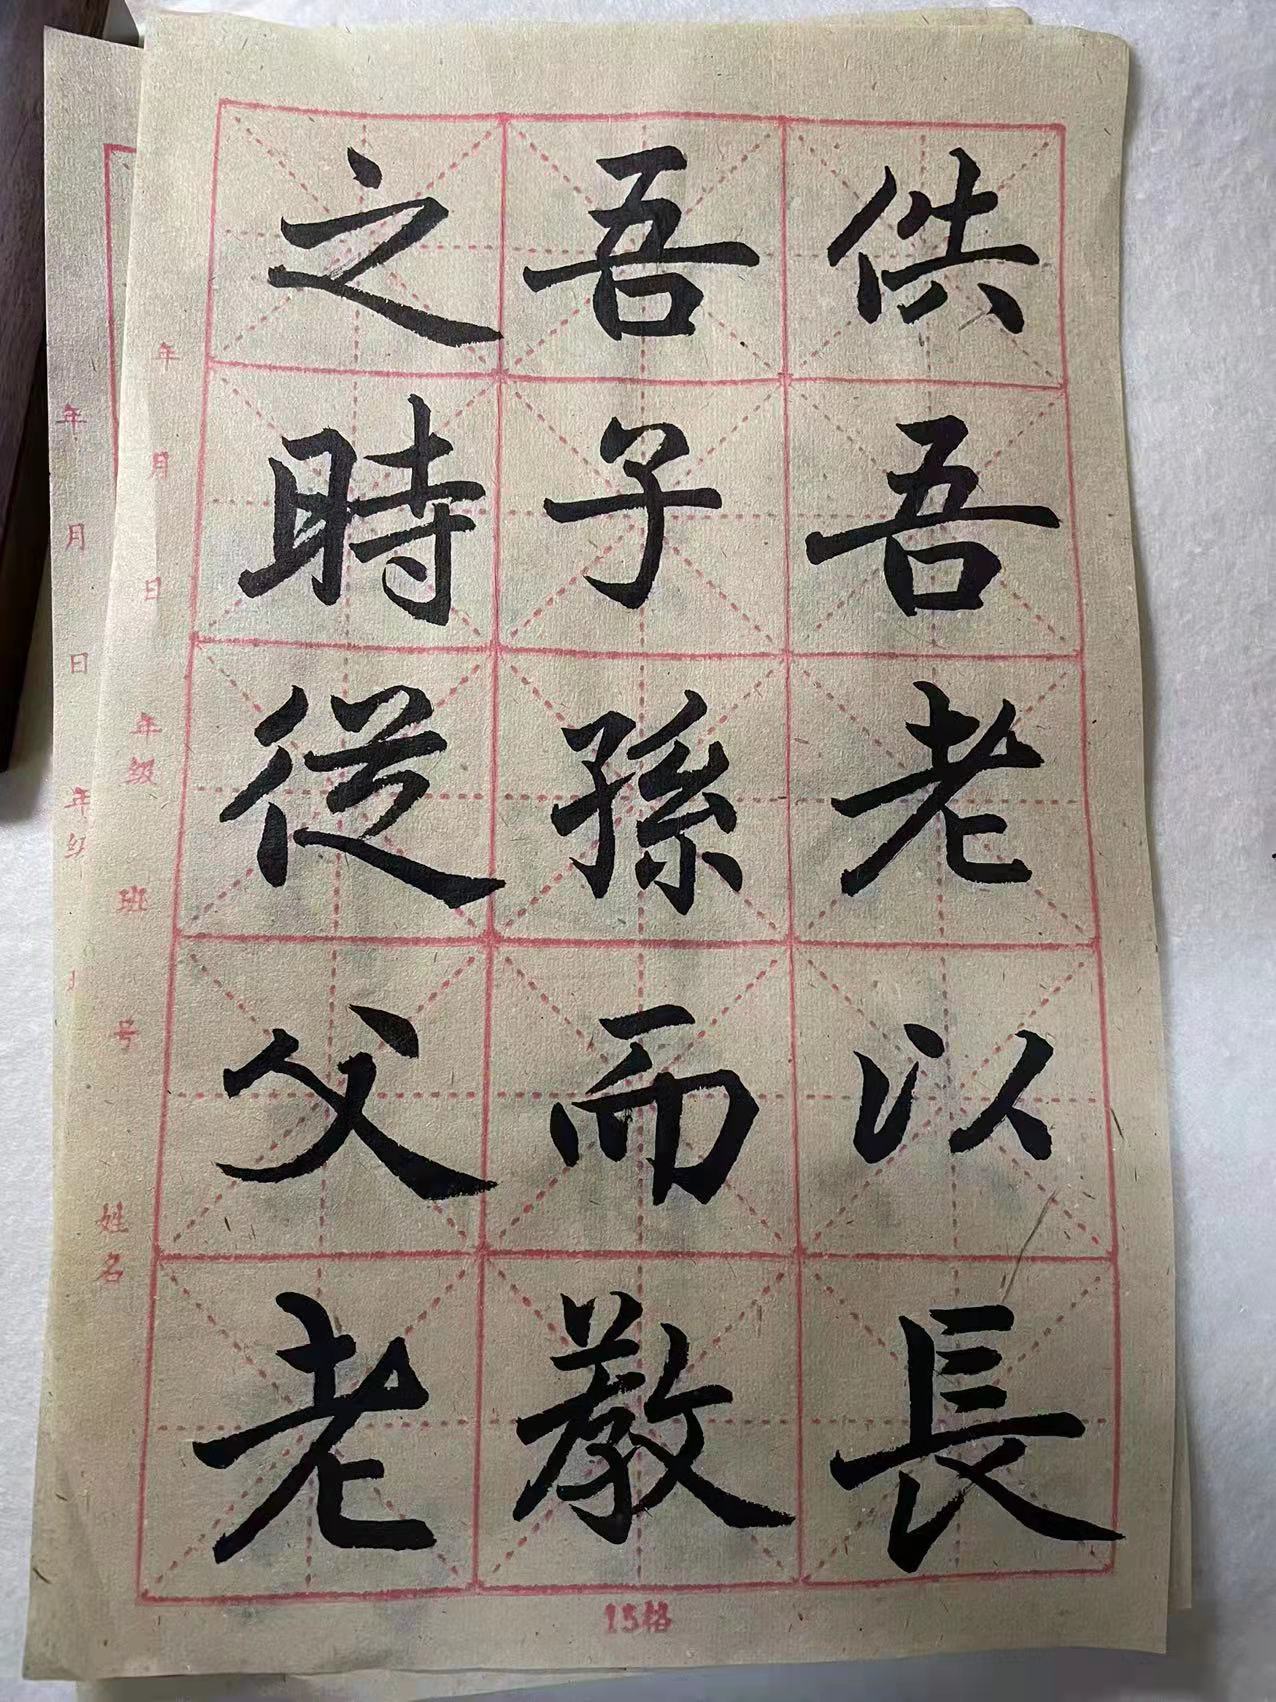 供吾老以長
吾子孫而教
之時從父老
年 月 日 年级 班 号 姓名
年 月 日 年
15格